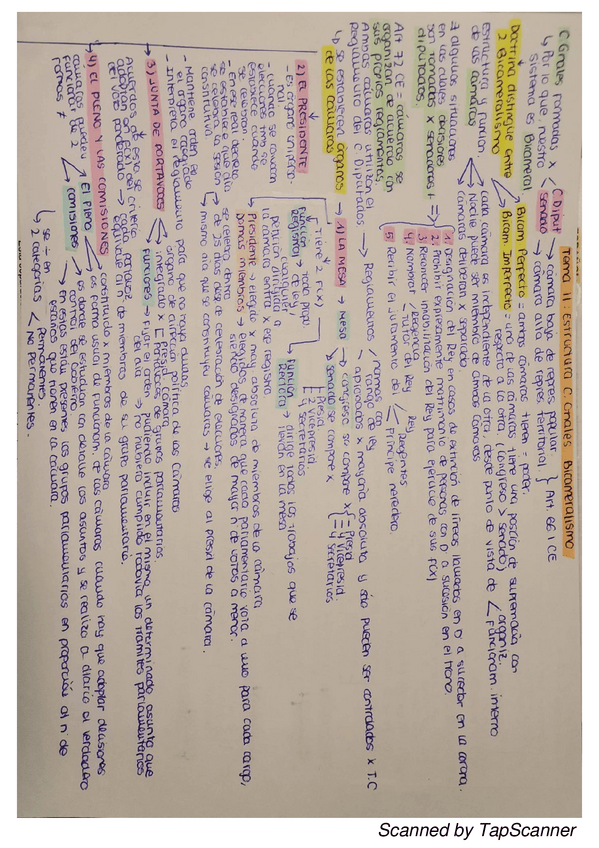 Tema 11: Estructura C. Grales. Bicameralismo
C. Grales formadas x < C. Diput → cámara baja de repres. popular. } Art. 66.1 CE
Senado → cámara alta de repres. territorial
↳ Por lo que, nuestro sistema es Bicameral
Doctrina distingue entre 2 Bicameralismo
Bicam Perfecto = ambas cámaras tienen = poder.
Bicam. Imperfecto = una de las cámaras tiene una posición de supremacía con respecto a la otra. (Congreso > Senado)
Estructura y funcion. de las cámaras
cada cámara es independiente de la otra, desde punto de vista de < organiz.
Funcionam. interno
Nadie puede ser miembro de ambas cámaras
cámaras deliberan x separado
∃ algunas situaciones en las cuales decisiones son tomadas x senadores + diputados. ⇒
1. Designación del Rey en casos de extinción de líneas llamadas en D a suceder en la corona.
2. Prohibir expresamente matrimonio de personas con D a sucesión en el trono
3. Reconocer inhabilitación del Rey para ejercicio de sus f(x)
4. Nombrar < Regencia
Tutor del Rey
5. Recibir el juramento del < Rey
Regentes
Príncipe heredero.
Art 72 CE = cámaras se organizan de acuerdo con sus propios reglamentos.
Ambas cámaras utilizan el Reglamento del C. Diputados
→ Reglamentos < normas con rango de ley
aprobados x mayoría absoluta y sólo pueden ser controlados x T.C
↳ se establecen órganos de las cámaras →
1) LA MESA → Mesa
congreso se compone x { Presid
4 Vicepresid.
4 Secretarios
senado se compone x { Presid
2 Vicepresid
4 Secretarios
↳ Tiene 2 F(x)
Función Rectora → dirige todos los trabajos que se llevan en la mesa
2) EL PRESIDENTE
- Es órgano uniperso-nal
Presidente: elegido x may. absoluta de miembros de la cámara
miembros: elegidos de manera que cada parlamentario vota a uno para cada cargo, siendo designados de mayor n de votos a menor.
- En ese real decreto
se celebra dentro de 25 días desde celebración de elecciones.
mismo día que se constituyen cámaras → se elige al presid de la cámara.
- Mantiene orden en el congreso
- Interpreta el reglamento para que no haya dudas.
3) JUNTA DE PORTAVOCES
órgano de dirección política de las cámaras
integrado x [ Presid. cámara
Portavoces de grupos parlamentarios.
Funciones → Fijar el orden del día pudiendo incluir en el mismo, un determinado asunto que no hubiera cumplido todavía los trámites parlamentarios
del voto ponderado → cada portavoz equivale al n de miembros de su grupo parlamentario.
4) EL PLENO Y LAS COMISIONES
cámaras pueden funcionar de 2 formas ≠
El Pleno
constituido x miembros de la cámara
es forma usual de funcionam. de las cámaras cuando hay que adoptar decisiones
Comisiones
es donde se estudian con detalle los asuntos y se realiza a diario el verdadero
en estas están presentes los grupos parlamentarios en proporción al n de escaños que tienen en la cámara.
↳ se ÷ en 2 categorías < Permanentes
No permanentes.
Scanned by TapScanner